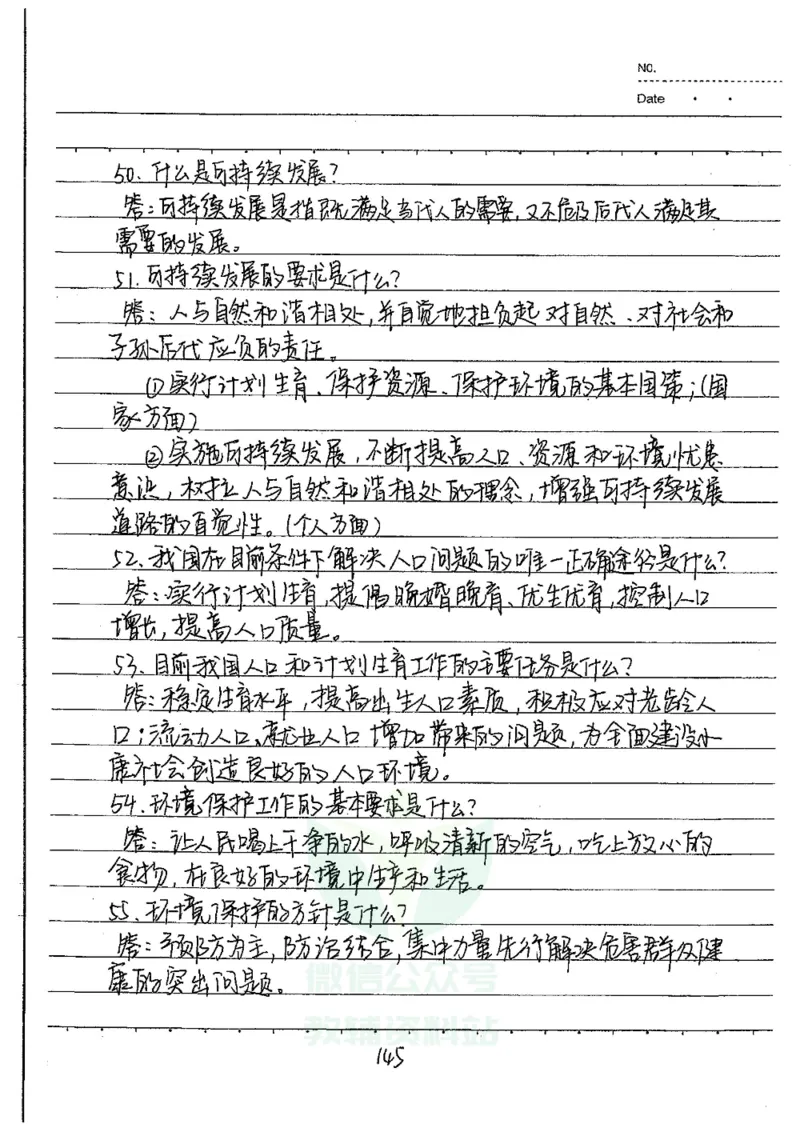 NO.
Date
50、什么是可持续发展？
答：可持续发展是指既满足当代人的需要，又不危及后代人满足其
需要的发展。
51、可持续发展的要求是什么？
答：人与自然和谐相处，并自觉地担负起对自然、对社会和
子孙后代应负的责任。
①实行计划生育、保护资源、保护环境的基本国策；（国
家方面）
②实施可持续发展，不断提高人口、资源和环境忧患
意识，树立人与自然和谐相处的理念，增强可持续发展
道路的自觉性。（个人方面）
52、我国在目前条件下解决人口问题的唯一正确途径是什么？
答：实行计划生育，提倡晚婚晚育、优生优育，控制人口
增长，提高人口质量。
53、目前我国人口和计划生育工作的主要任务是什么？
答：稳定生育水平，提高出生人口素质，积极应对老龄人
口；流动人口、就业人口增加带来的问题，为全面建设小
康社会创造良好的人口环境。
54、环境保护工作的基本要求是什么？
答：让人民喝上干净的水，呼吸清新的空气，吃上放心的
食物，在良好的环境中生产和生活。
55、环境保护的方针是什么？
答：预防为主，防治结合，集中力量先行解决危害群众健
康的突出问题。
微信公众号
教辅资料站
145